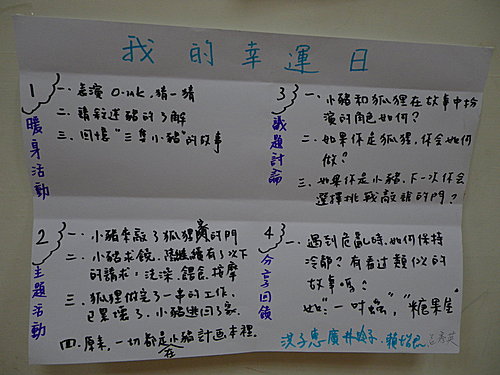 我的幸運日
1
暖身活動
一、表演 oink,猜一猜
二、請敘述豬的了解
三、回憶"三隻小豬"的故事
2
主題活動
一、小豬來敲了狐狸窩的門
二、小豬求饒,陸續有了以下
的請求:洗澡、餵食、按摩
三、狐狸做完了一串的工作,
已累壞了,小豬逃回了家
四、原來,一切都在是小豬計畫本裡。
3
議題討論
一、小豬和狐狸在故事中扮
演的角色如何?
二、如果你是狐狸,你會如何
做?
三、如果你是小豬,下一次你會
選擇挑戰敲誰的門?
4
分享回饋
一、遇到危亂時,如何保持
冷靜?有看過類似的
故事嗎?
如:"一吋蟲","糖果屋"